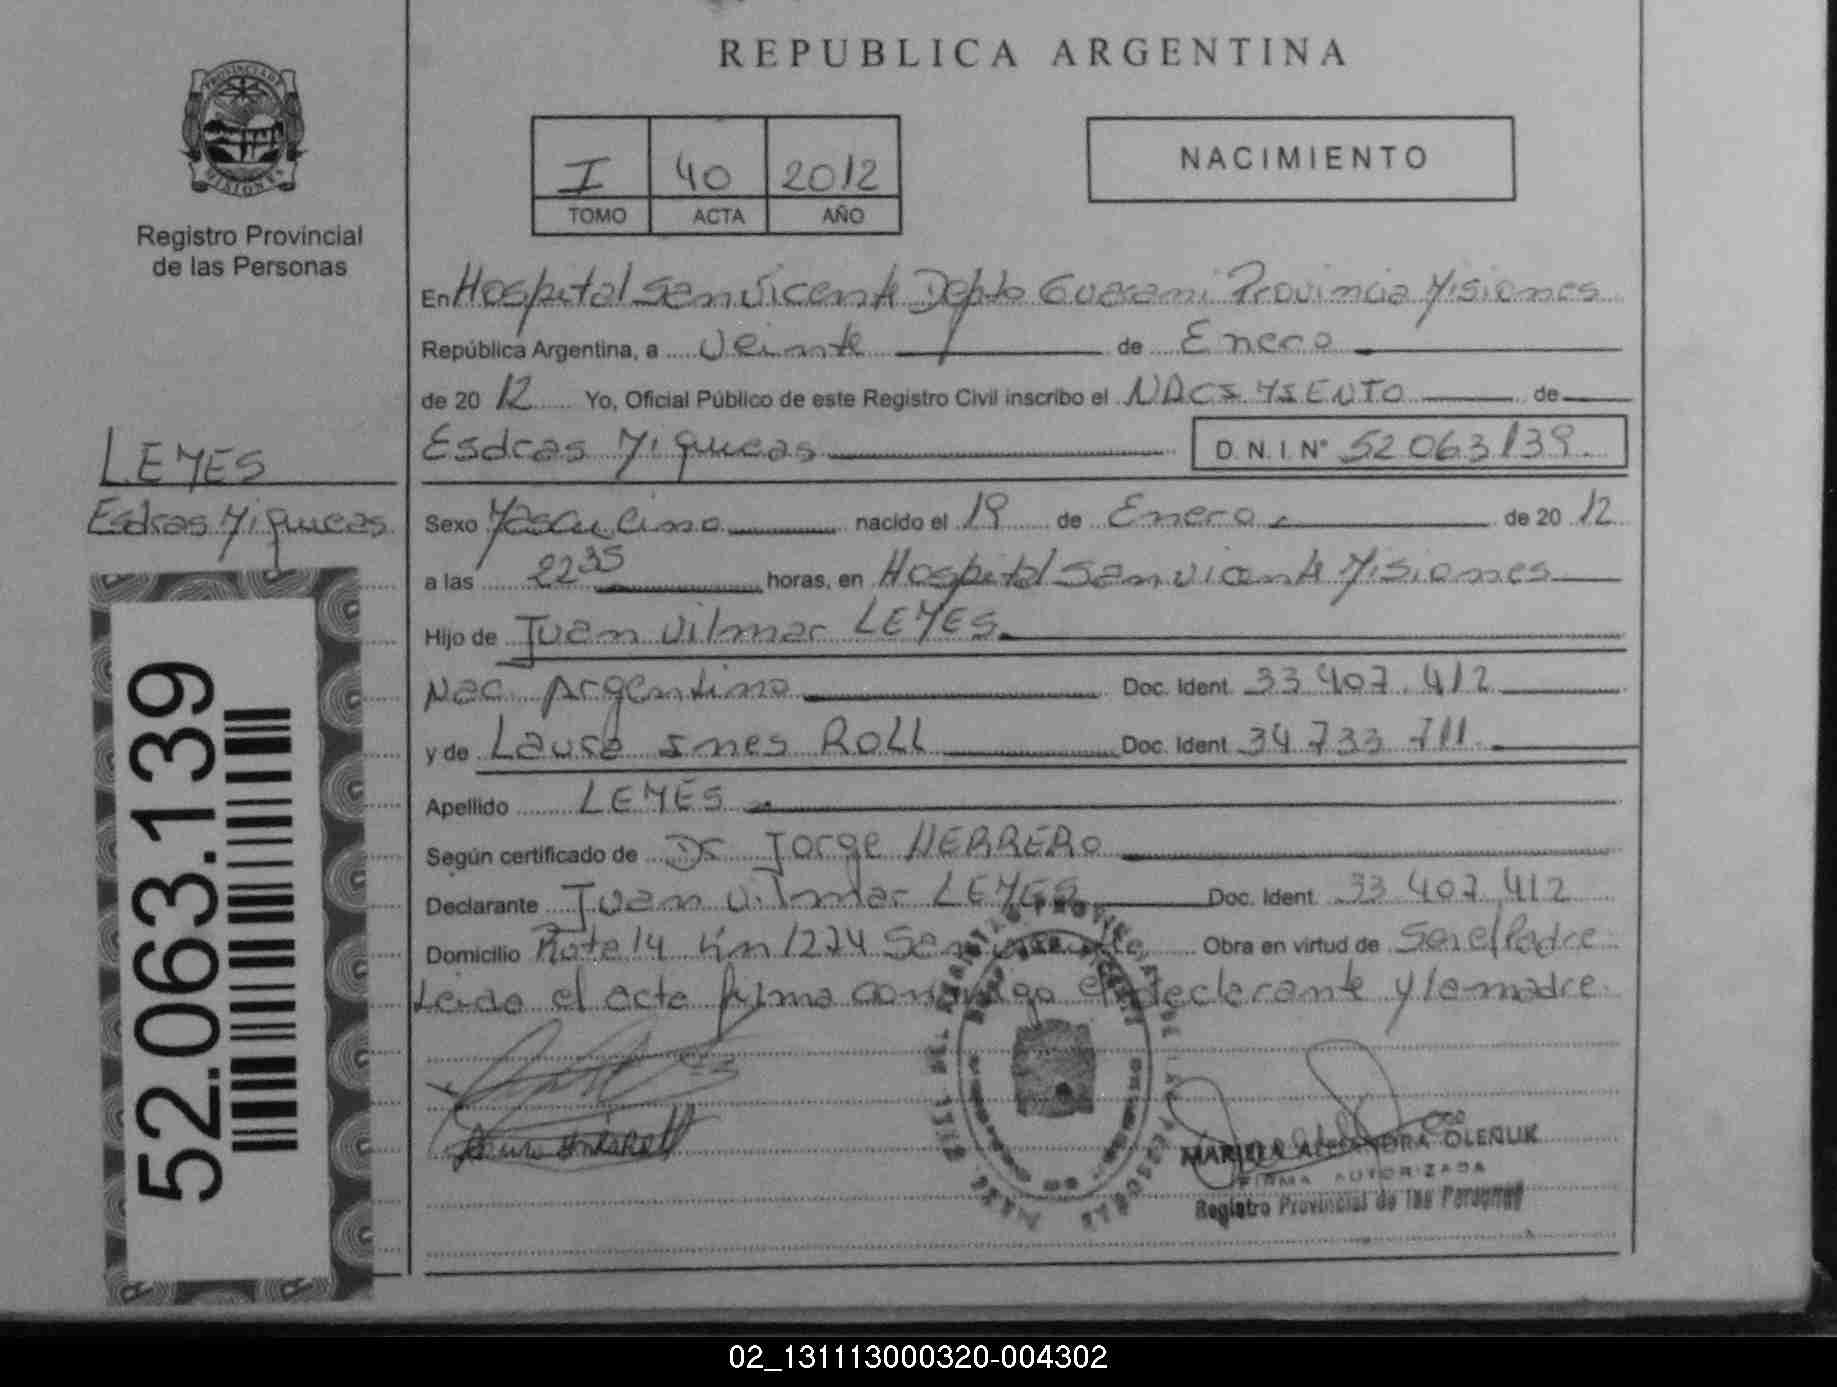 REPUBLICA ARGENTINA
PROVINCIA DE MISIONES
Registro Provincial
de las Personas
I 40 2012
TOMO ACTA AÑO
NACIMIENTO
En Hospital San Vicente Depto Guarani Provincia Misiones
República Argentina, a Veinte de Enero
de 20 12 Yo, Oficial Público de este Registro Civil inscribo el NACIMIENTO de
Esdras Miqueas D. N. I. N° 52 063 139
LEMES
Esdras Miqueas
Sexo Masculino nacido el 19 de Enero de 20 12
a las 22 35 horas, en Hospital San Vicente Misiones
Hijo de Juan Vilmar LEMES
Nac. Argentino Doc. Ident 33 407 412
y de Laura Ines ROLL Doc. Ident 34 733 711
Apellido LEMES
Según certificado de Dr Jorge HERRERO
Declarante Juan Vilmar LEMES Doc. Ident. 33 407 412
Domicilio Ruta 14 Km 1274 San Vicente Obra en virtud de Ser el Padre
Leida el acta firma conmigo el declarante y la madre
52.063.139
MARIELA ALEJANDRA OLENUK
FIRMA AUTORIZADA
Registro Provincial de las Personas
02_131113000320-004302